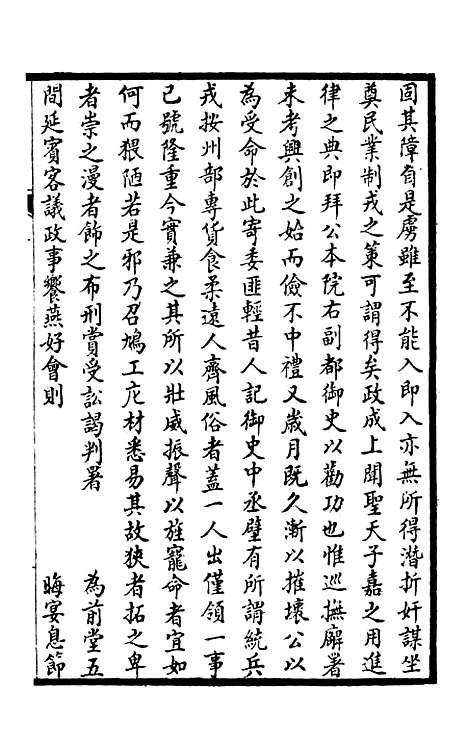 固其障自是虜雖至不能入即入亦無所得潛折奸謀坐
奠民業制戎之策可謂得矣政成上聞聖天子嘉之用進
律之典即拜公本院右副都御史以勸功也惟巡撫廨署
未考興創之始而儉不中禮又歲月既久漸以摧壞公以
為受命於此寄委匪輕昔人記御史中丞壁有所謂統兵
戎按州部專貨食柔遠人齊風俗者蓋一人出僅領一事
已號隆重今實兼之其所以壯威振聲以旌寵命者宜如
何而猥陋若是邪乃召鳩工庀材悉易其故狹者拓之卑
者崇之漫者飾之布刑賞受訟謁判署 為前堂五
間延賓客議政事饗燕好會則 晦宴息節